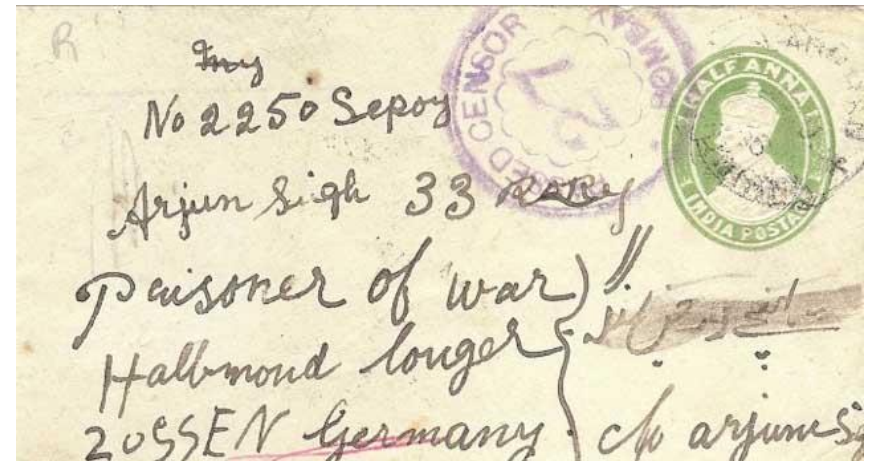 R
My
No 2250 Sepoy
Arjun Sigh 33
Prisoner of war
Halbmond louger
ZOSSEN Germany
c/o arjun S
PASSED CENSOR BOMBAY
27
HALF ANNA
INDIA POSTAGE